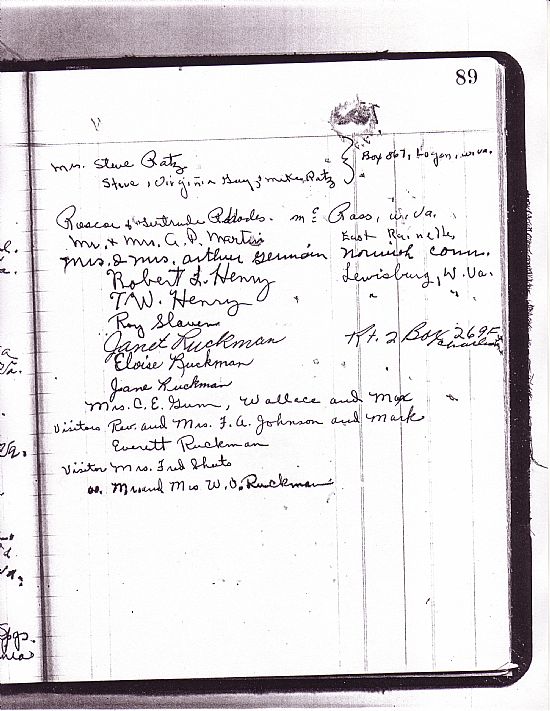 89
Mrs. Steve Ratz
Box 867, Logan, W.Va.
Steve, Virginia Gay, & Mike Ratz
Roscoe & Gertrude Rhodes. Mc Ross, W.Va.
Mr. & Mrs. A. P. Martin East Rainelle,
Mrs. & Mrs. Arthur German Norwich Conn.
Robert L. Henry Lewisburg, W.Va.
T.W. Henry " "
Roy Slaven
Janet Ruckman Rt. 2 Box 269F
Eloise Ruckman
Jane Ruckman
Mrs. C. E. Gum, Wallace and Max
Visitors Rev. and Mrs. F. A. Johnson and Mark
Everett Ruckman
Visitor Mrs. Fred Sheets
Mr and Mrs W. O. Ruckman